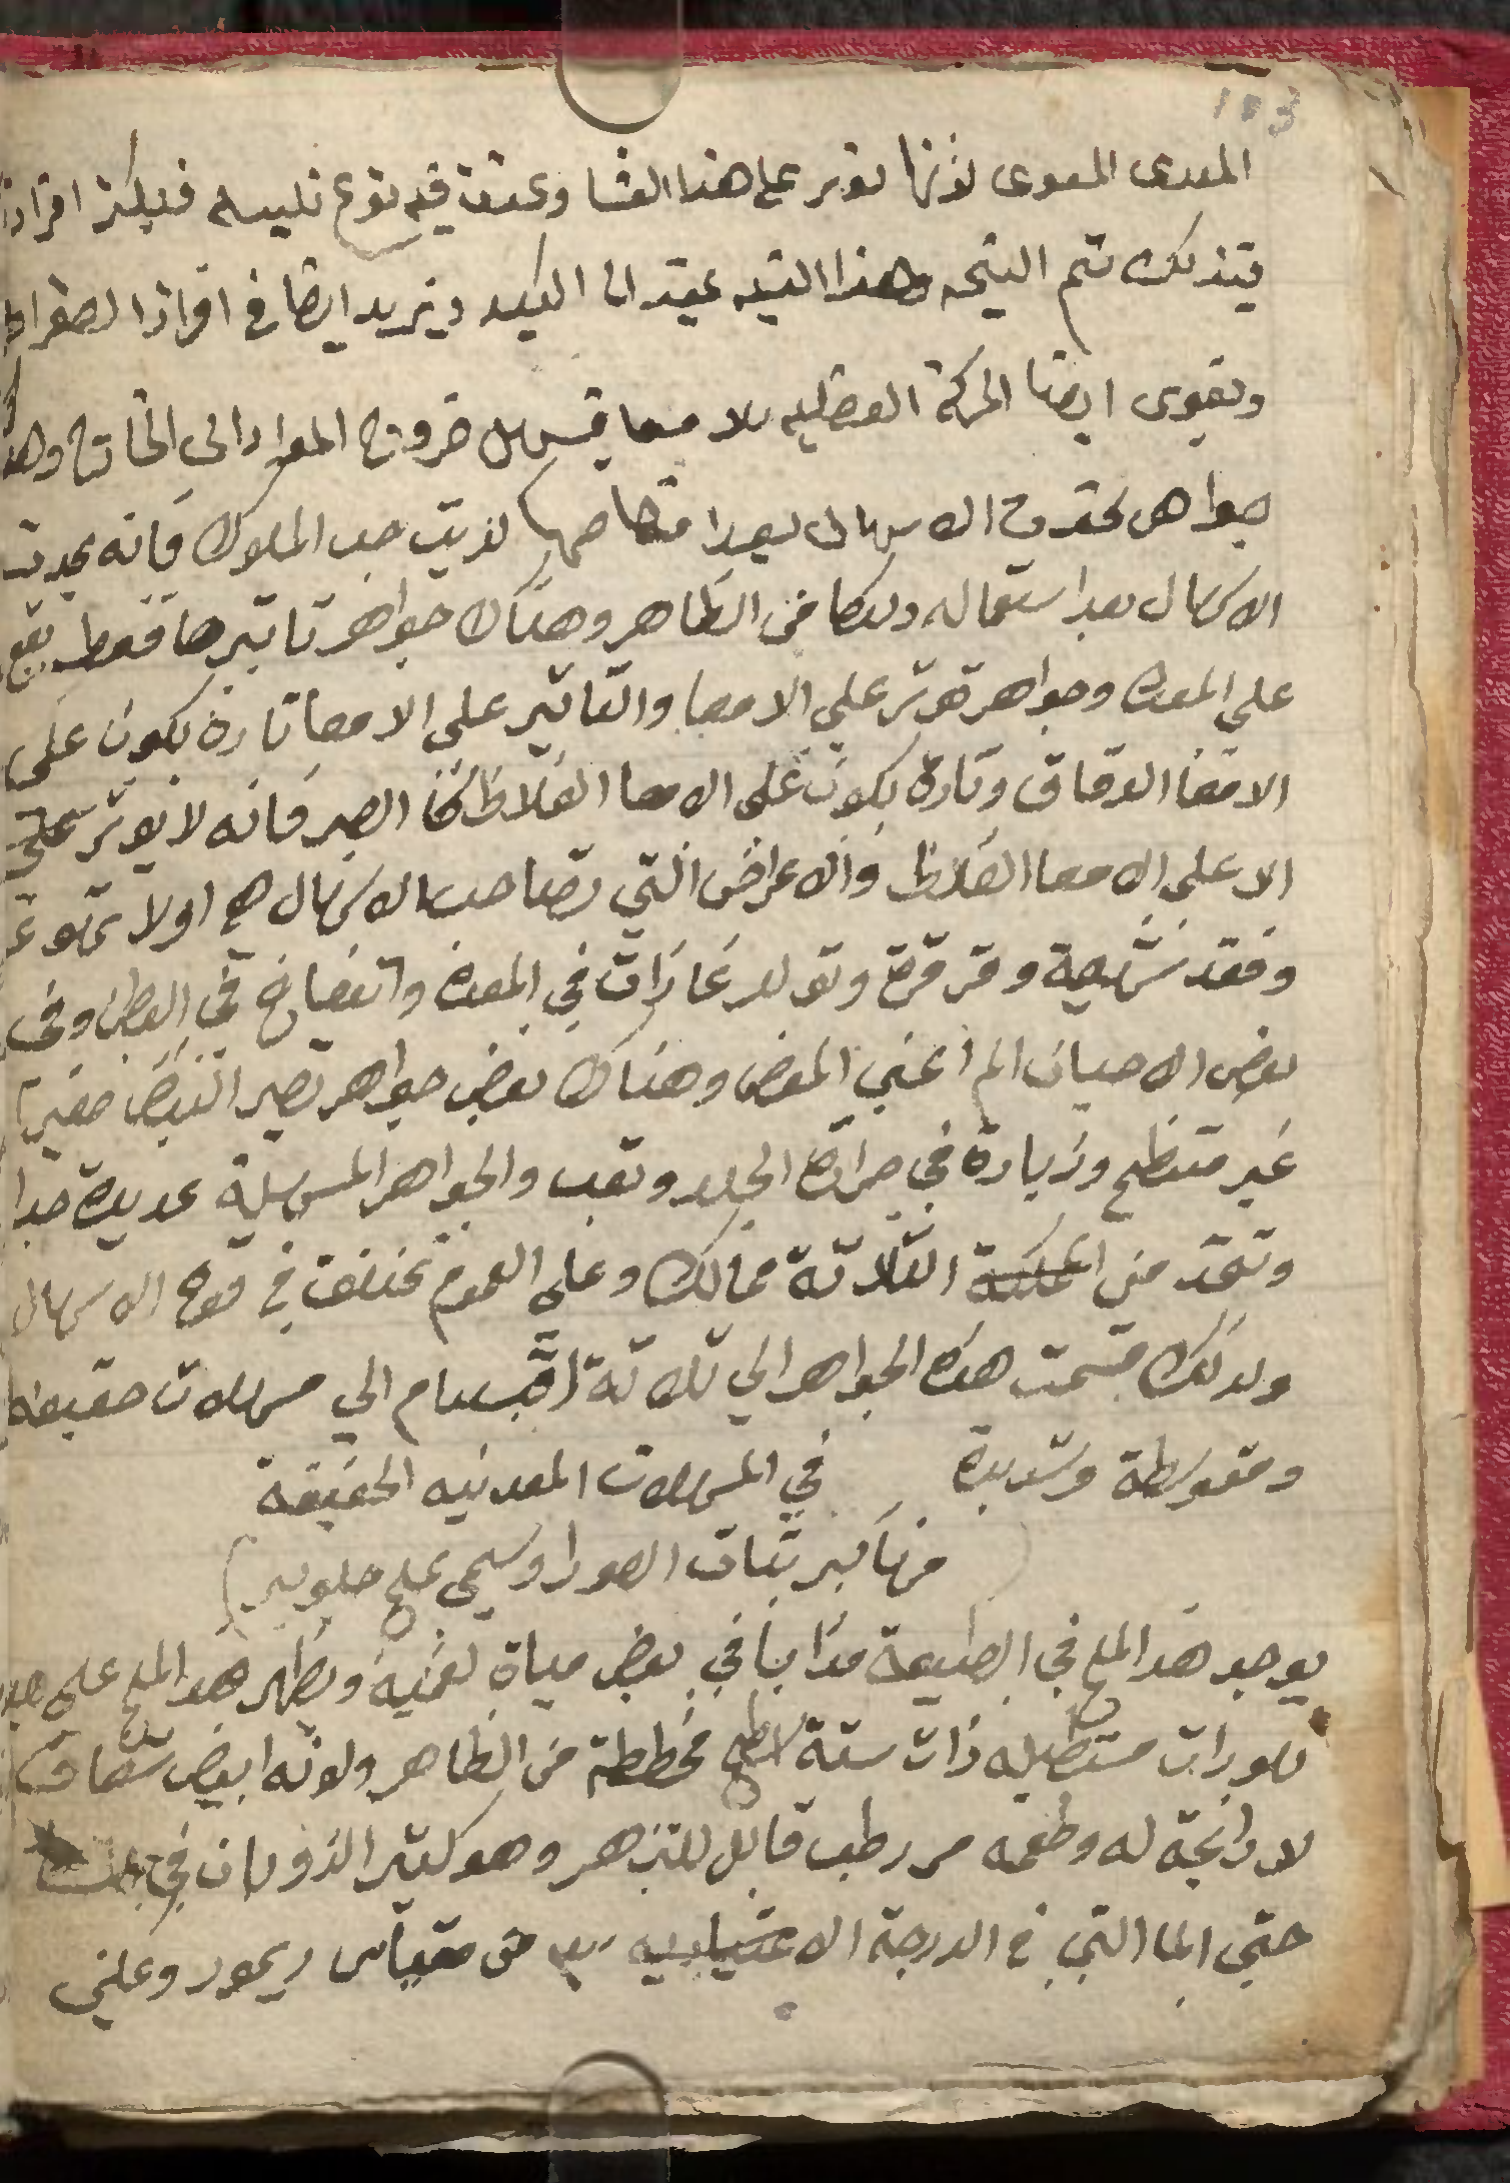 103
المعدى المعوى لانها توتر على هذا الغشا وتحدث فيه نوع تلبيه فيكثر افراز
فيتذلك تتم النتيجه وهذا التنبه يمتد الى الكبد ويزيد ايضا في افراز الصفرا
وتقوى ايضا الحركة العضليه للامعا فيسهل خروج المواد الى الخارج وهنا
جواهر تحدث الاسهال بعد امتصاصها كزيت حب الملوك فانه يحدث
الاسهال بعد استعماله دلكا من الظاهر وهناك جواهر تاتيرها فقط يقع
على المعده وجواهر توتر على الامعا والتاتير على الامعا تارة يكون على
الامعا الدقاق وتارة يكون على الامعا الغلاظ كما الصبر فانه لا يوتر
الا على الامعا الغلاظ والاعراض التي تصاحب الاسهال هي اولا تهوع
وفقد شهية وقرقرة وتولد غازات في المعده وانتفاخ في البطن وفى
بعض الاحيان الم اعني المغص وهناك بعض جواهر تصير النبض صغيرا
غير منتظم وزيادة في حرارة الجلد وتعب والجواهر المسهلية عديدة جدا
وتتخذ من المملكة الثلاتة ممالك وعلى العموم تختلف في قوة الاسهال
ولذلك قسمت هذه الجواهر الي تلاتة اقسام الي مسهلات خفيفه
ومتوسطة وشديدة في المسهلات المعدنيه الخفيفة
منها كبريتات الصودا ويسمى بملح جلوبير
يوجد هذا الملح في الطبيعة مذابا في بعض مياة لغمية ويظهر هذا الملح على هيئة
بلورات مستطيله ذات ستة اسطح مخططة من الظاهر ولونه ابيض شفاف
لا رائحة له وطعمه مر رطب قابل للتزهر وهو كتير الذوبان في
حتى الما التي في الدرجة الاعتياديه من مقياس ريمور وعلى